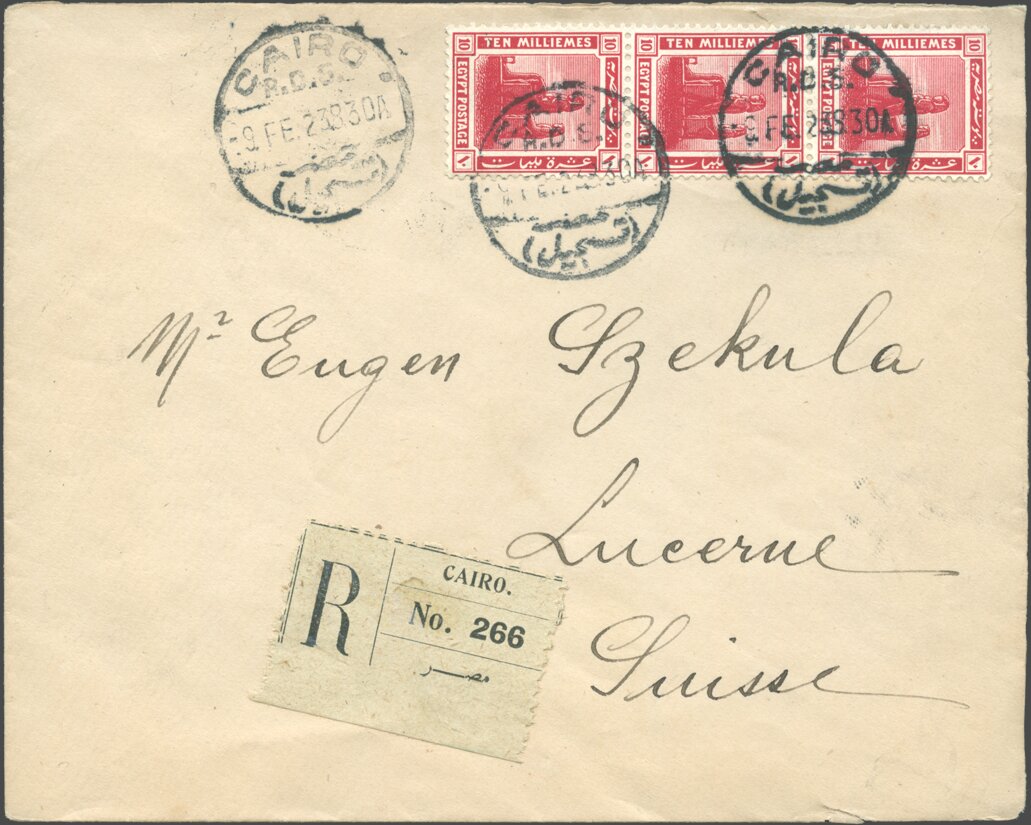 CAIRO
R.D.S.
-9.FE.23 8.30A
مصر
(تسجيل)
TEN MILLIEMES
10
10
EGYPT POSTAGE
عشرة مليمات
١٠
TEN MILLIEMES
10
10
EGYPT POSTAGE
عشرة مليمات
١٠
١٠
TEN MILLIEMES
10
10
EGYPT POSTAGE
عشرة مليمات
١٠
CAIRO
R.D.S.
-9.FE.23 8.30A
مصر
(تسجيل)
CAIRO
R.D.S.
-9.FE.23 8.30A
مصر
(تسجيل)
Mr Eugen Szekula
Lucerne
Suisse
R
CAIRO.
No. 266
مصر